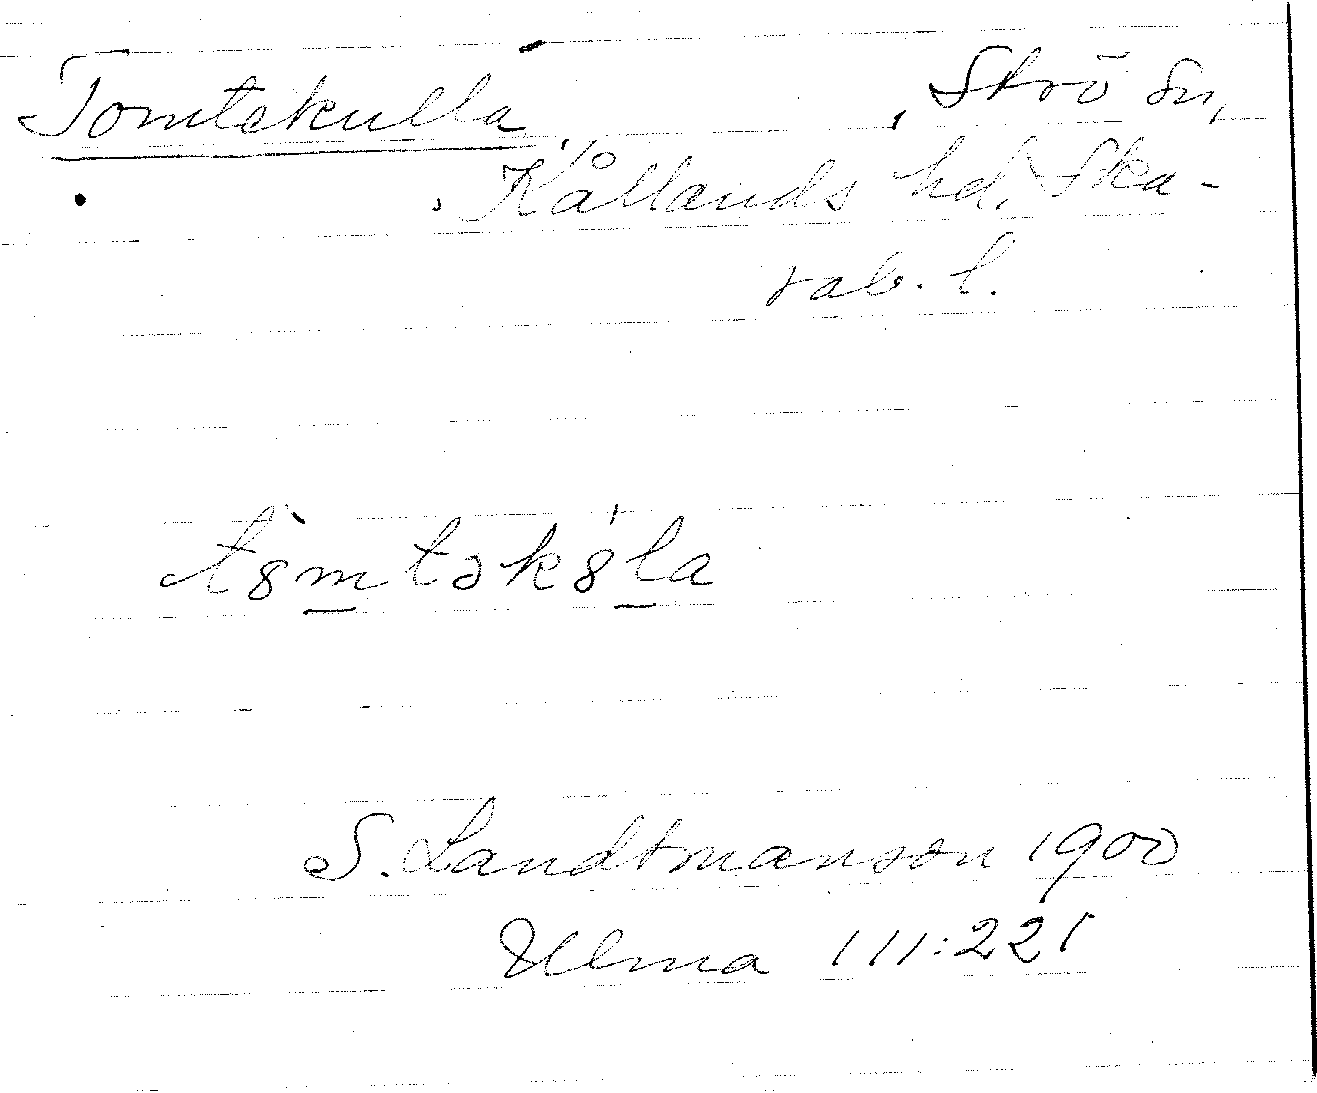 Tomtekulla, Strö sn,
Kållands hd, Ska-
rab. l.
tȣ̀mtəkȣ́la
S. Landtmanson 1900
Ulma 111:221